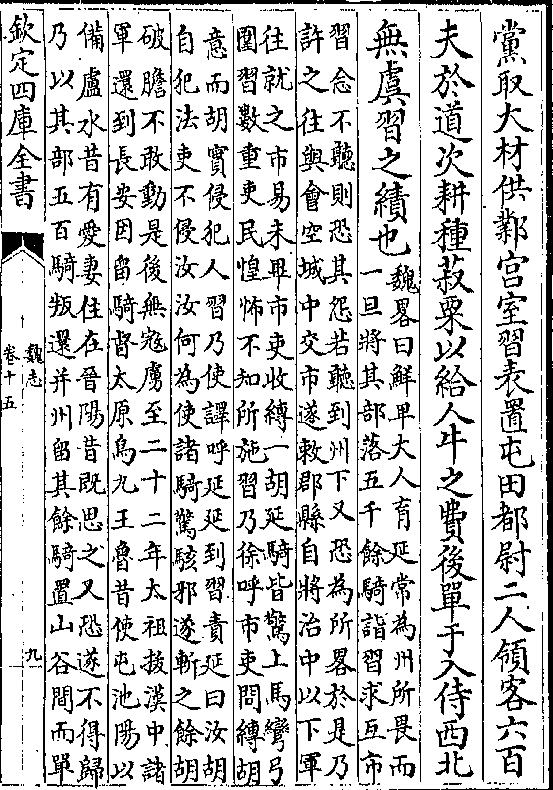 黨取大材供鄴宮室習表置屯田都尉二人領客六百
夫於道次耕種菽粟以給人牛之費後單于入侍西北
無虞習之績也
魏畧曰鮮卑大人育延常為州所畏而
一旦將其部落五千餘騎詣習求互市
習念不聽則恐其怨若聽到州下又恐為所畧於是乃
許之往與會空城中交市遂敕郡縣自將治中以下軍
往就之市易未畢市吏收縛一胡延騎皆驚上馬彎弓
圍習數重吏民惶怖不知所施習乃徐呼市吏問縛胡
意而胡實侵犯人習乃使譯呼延延到習責延曰汝胡
自犯法吏不侵汝汝何為使諸騎驚駭邪遂斬之餘胡
破膽不敢動是後無寇虜至二十二年太祖拔漢中諸
軍還到長安因留騎督太原烏九王魯昔使屯池陽以
備盧水昔有愛妻住在晉陽昔既思之又恐遂不得歸
乃以其部五百騎叛還并州留其餘騎置山谷間而單
欽定四庫全書
魏志
卷十五
九